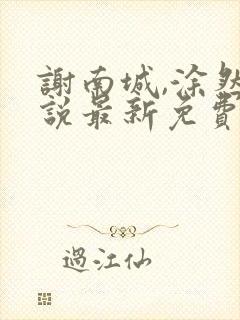 謝南城,涂然
說最新免費
過江仙